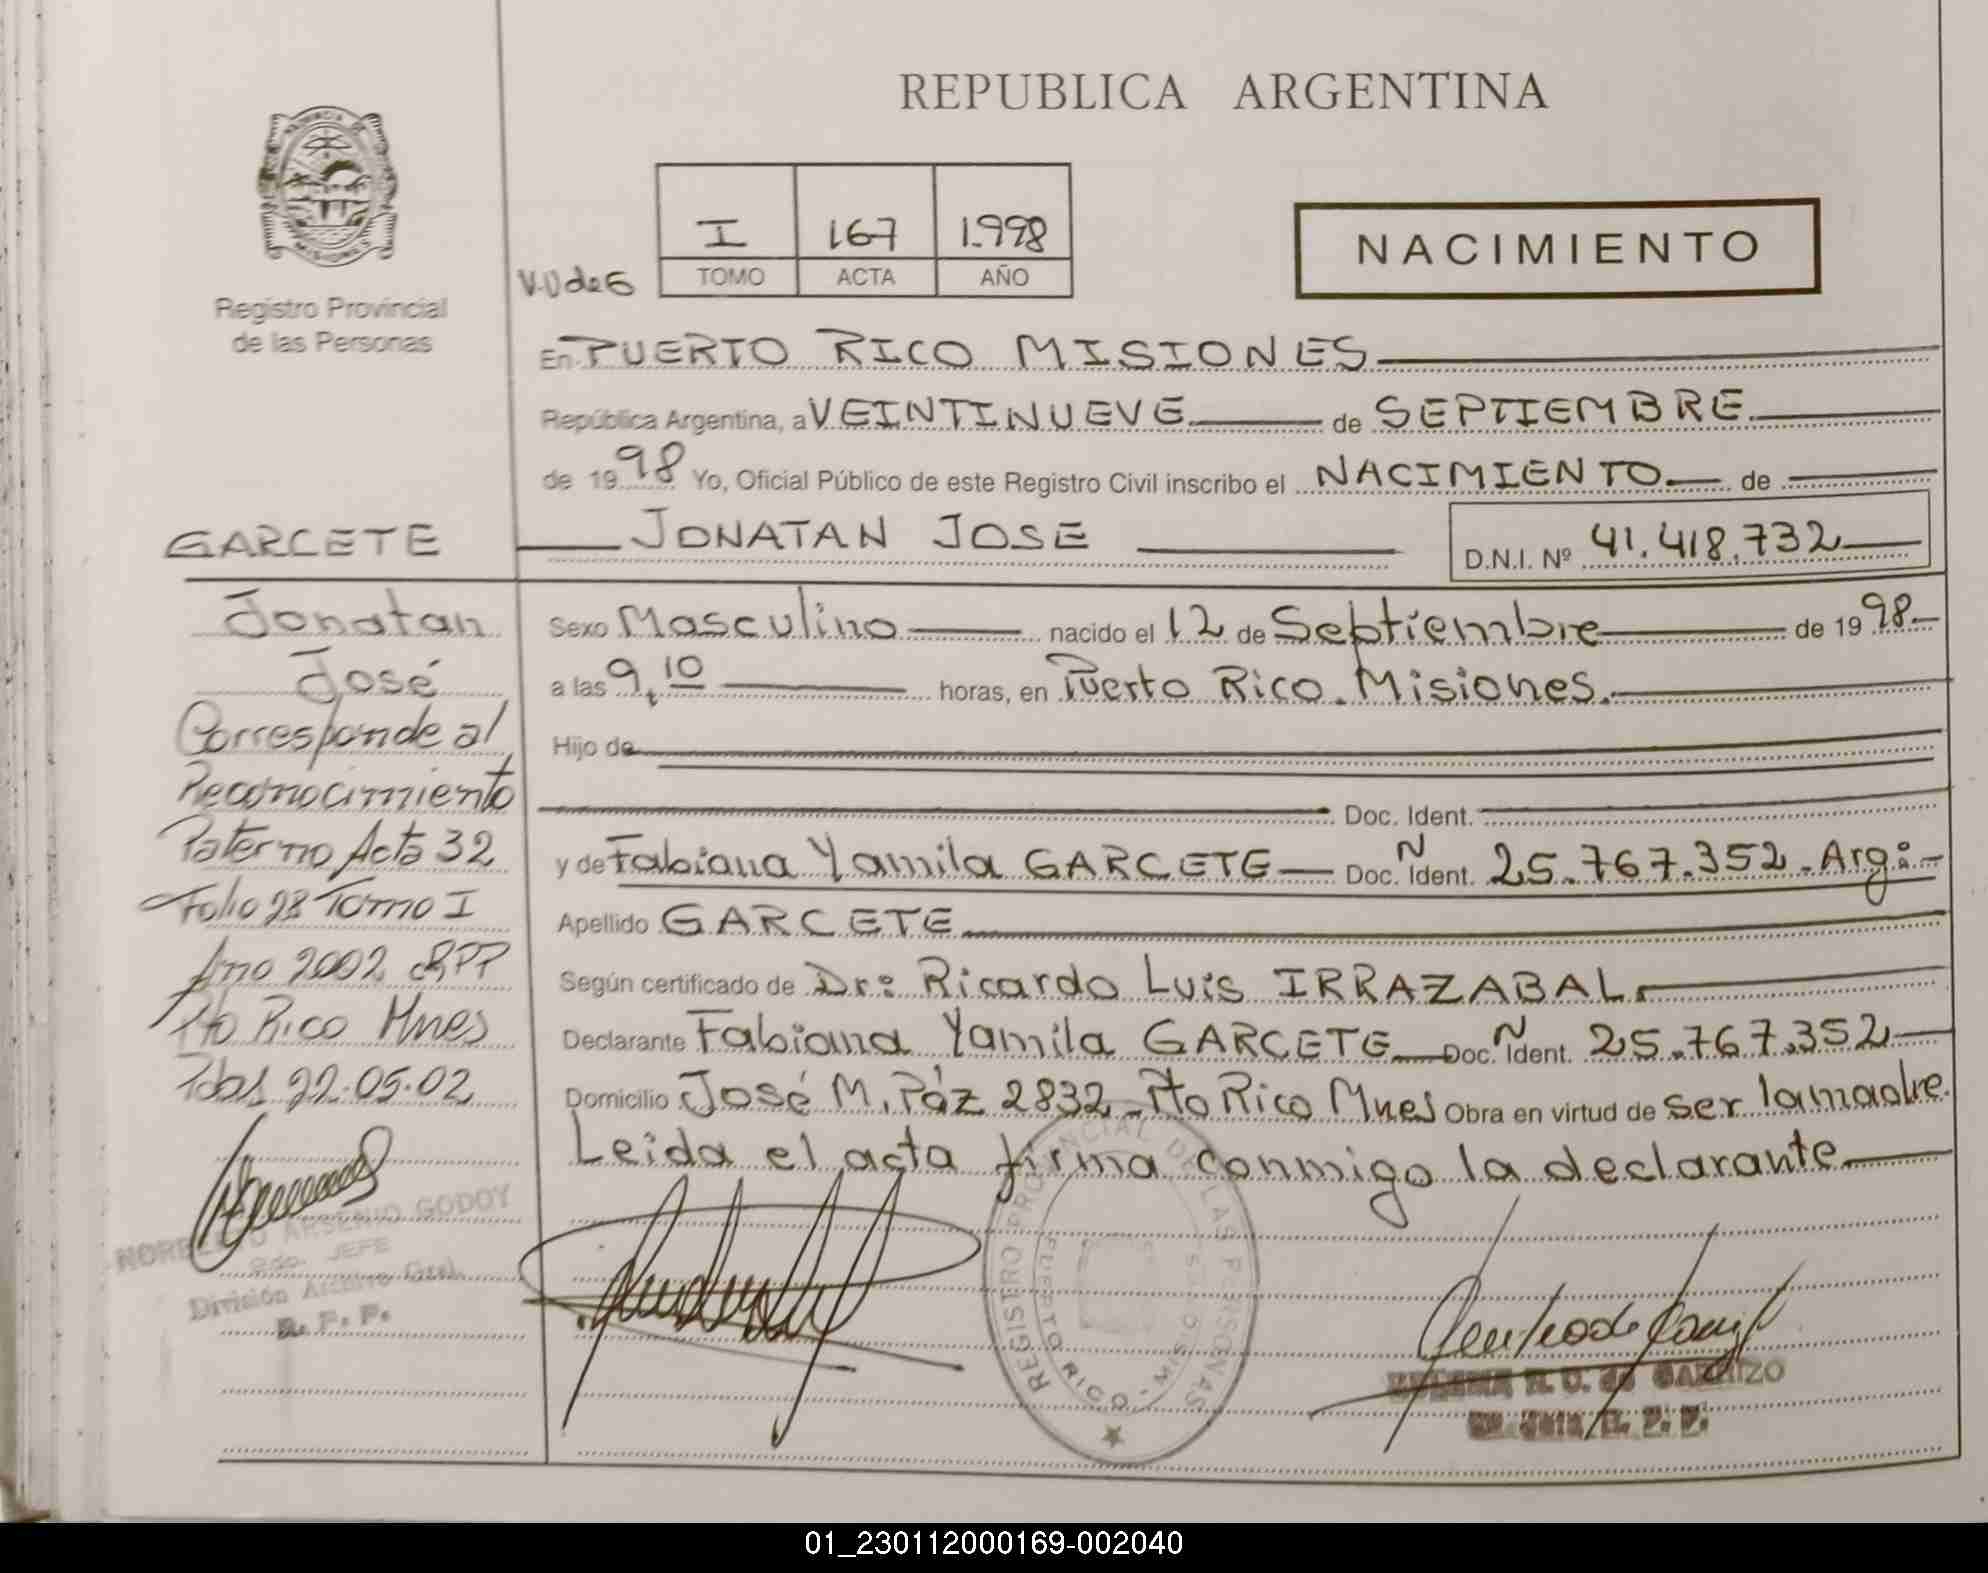 REPUBLICA ARGENTINA
I 167 1.998
TOMO ACTA AÑO
V.U de 6
NACIMIENTO
Registro Provincial
de las Personas
En PUERTO RICO MISIONES
República Argentina, a VEINTINUEVE de SEPTIEMBRE
de 1998 Yo, Oficial Público de este Registro Civil inscribo el NACIMIENTO de
JONATAN JOSE
D.N.I. Nº 41.418.732
Sexo Masculino nacido el 12 de Septiembre de 1998
a las 9,10 horas, en Puerto Rico. Misiones.
Hijo de
Doc. Ident.
y de Fabiana Yamila GARCETE Doc. N Ident. 25.767.352-Arg:
Apellido GARCETE
Según certificado de Dr: Ricardo Luis IRRAZABAL
Declarante Fabiana Yamila GARCETE Doc. N Ident. 25.767.352
Domicilio José M. Páz 2832-Pto Rico Mnes Obra en virtud de ser la madre.
Leida el acta firma conmigo la declarante
GARCETE
Jonatan
José
Corresponde al
Reconocimiento
Paterno Acta 32
Folio 28 Tomo I
Año 2002 RPP
Pto Rico Mnes
Pdas 22.05.02
ARSENIO GODOY
JEFE
División Archivo Gral.
R. P. P.
REGISTRO PROVINCIAL DE LAS PERSONAS
PUERTO RICO - MISIONES
R. P. P.
01_230112000169-002040